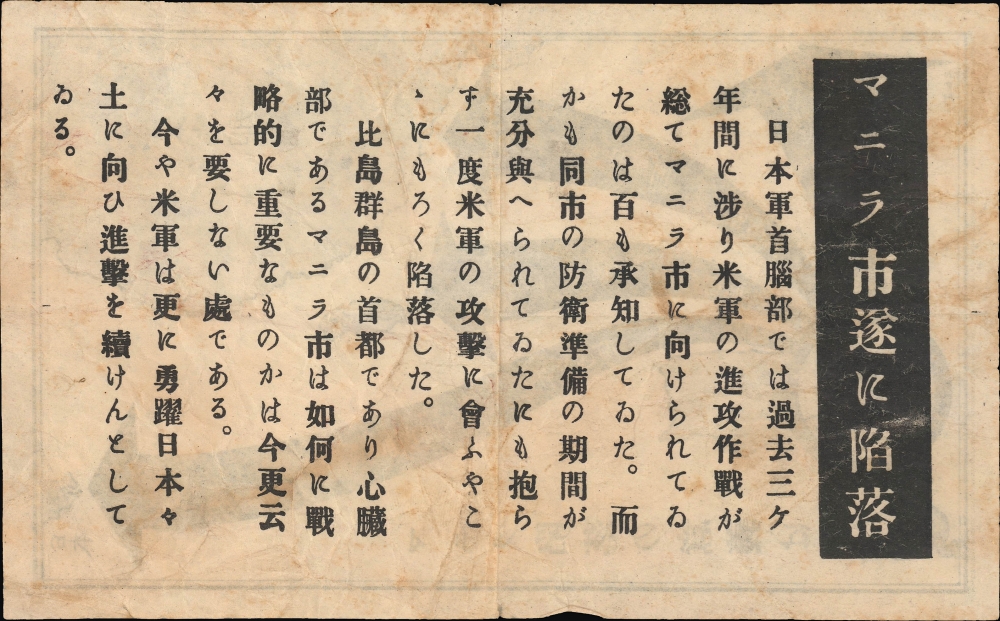 マニラ市遂に陥落
日本軍首腦部では過去三ケ
年間に涉り米軍の進攻作戰が
総てマニラ市に向けられてゐ
たのは百も承知してゐた。而
かも同市の防衛準備の期間が
充分與へられてゐたにも抱ら
す一度米軍の攻擊に會ふやこ
ゝにもろく陥落した。
比島群島の首都であり心臓
部であるマニラ市は如何に戰
略的に重要なものかは今更云
々を要しない處である。
今や米軍は更に勇躍日本々
土に向ひ進擊を續けんとして
ゐる。